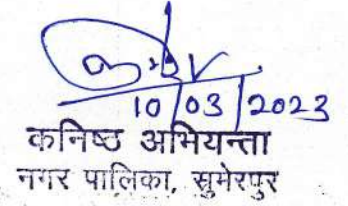 10/03/2023
कनिष्ठ अभियन्ता
नगर पालिका, सुमेरपुर